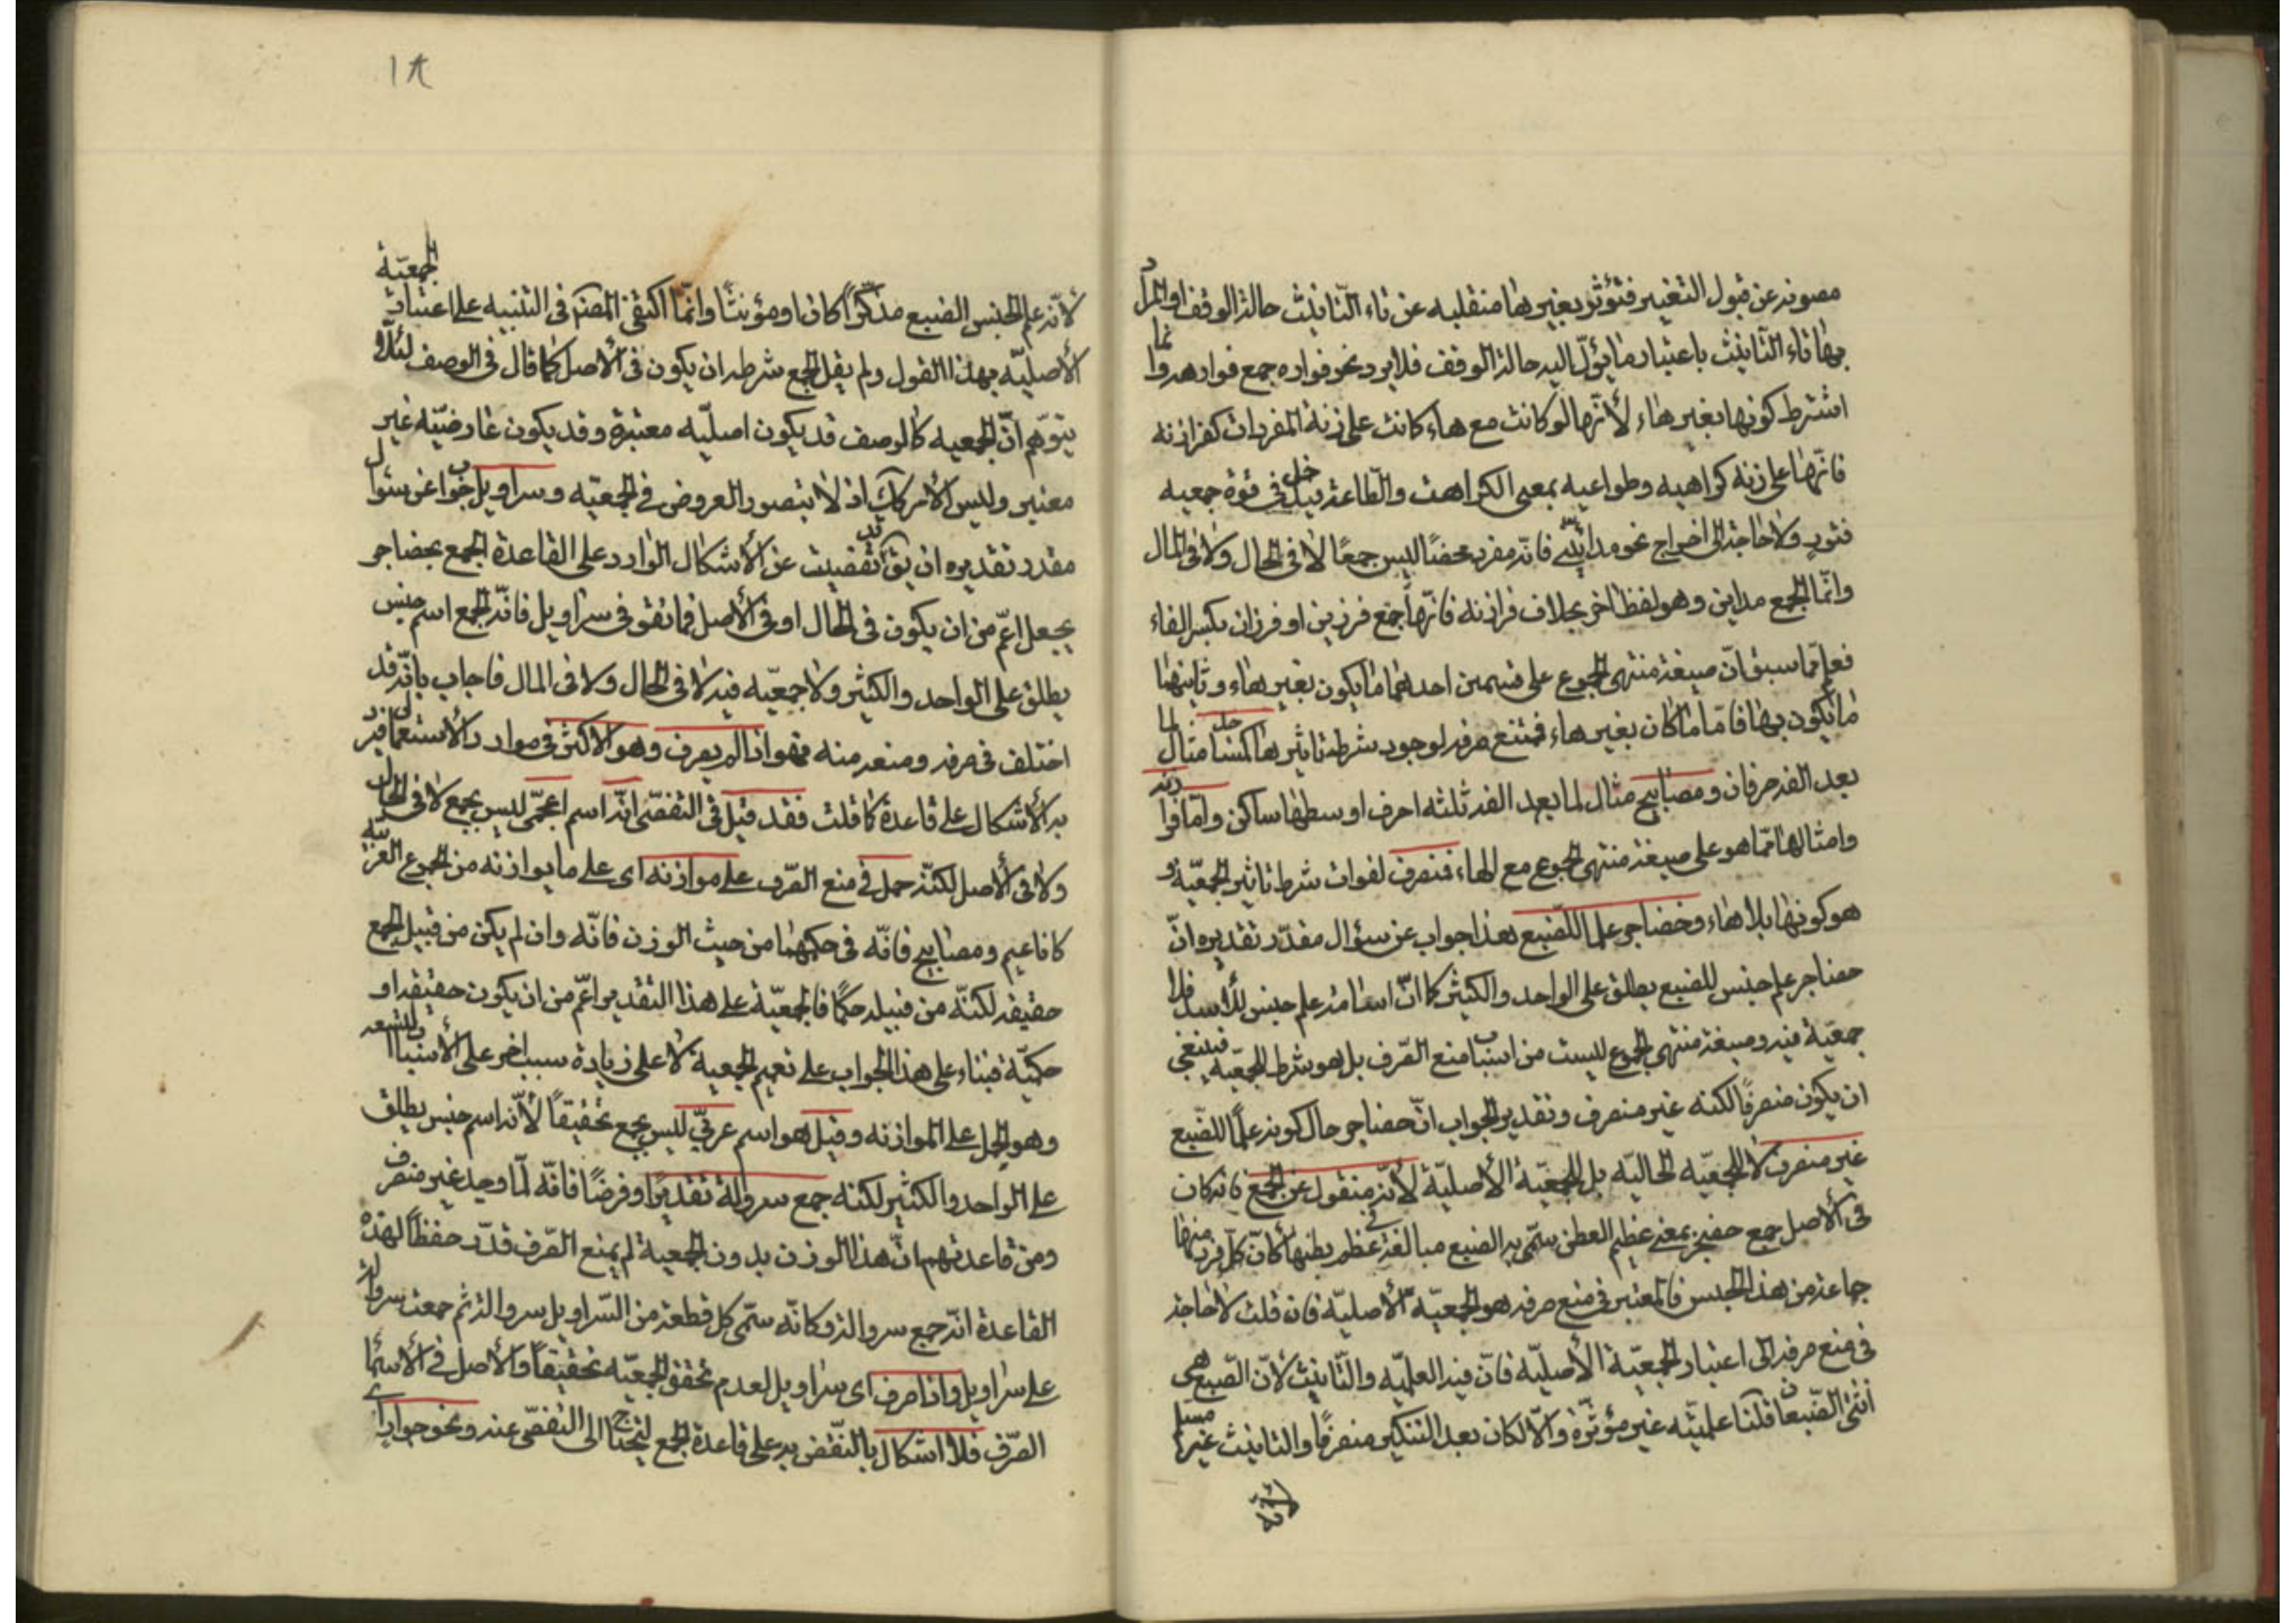 مصونه عن قبول التغيير فتؤثر بغير هاء منقلبه عن تاء التانيث حالة الوقف او المراد
بها تاء التانيث باعتبار ما يؤل اليه حالة الوقف فلا يرد نحو فواره جمع فوار هد وانما
اشترط كونها بغير هاء لأنها لو كانت مع هاء كانت على زنة المفردات كفرازنه
فانها على زنه كراهيه وطواعيه بمعنى الكراهة والطاعة فيدخل في قوة جمعيه
فتور ولا حاجة الى اخراج نحو مدائني فانه مفرد محضا ليس جمعا لا في الحال ولا في المال
وانما الجمع مداين وهو لفظ اخر بخلاف فرازنه فانها جمع فرزين او فرزان بكسر الفاء
فعلم مما سبق ان صيغة منتهى الجموع على قسمين احدهما ما يكون بغير هاء وثانيهما
ما يكون بها فاما ما كان بغير هاء فممتنع صرفه لوجود شرط تاثيرها كمساجد مثال لما
بعد الفه حرفان ومصابيح مثال لما بعد الفه ثلثه احرف اوسطها ساكن واما فرازنه
وامثالها مما هو على صيغة منتهى الجموع مع الهاء فمنصرف لفوات شرط تاثير الجمعية و
هو كونها بلا هاء وحضاجر علما للضبع هذا جواب عن سؤال مقدر تقديره ان
حضاجر علم جنس للضبع يطلق على الواحد والكثير كما ان اسامة علم جنس للأسد فلا
جمعية فيه وصيغة منتهى الجموع ليست من اسباب منع الصرف بل هو شرط للجمعيه فينبغي
ان يكون منصرفا لكنه غير منصرف وتقدير الجواب ان حضاجر حال كونه علما للضبع
غير منصرف لا للجمعيه الحاليه بل للجمعية الأصلية لأنه منقول عن الجمع فانه كان
في الأصل جمع حضجر بمعنى عظيم البطن سمى به الضبع مبالغة في عظم بطنها كان كل فرد منها
جماعة من هذا الجنس فالمعتبر في منع صرفه هو الجمعية الأصلية فان قلت لا حاجة
في منع صرفه الى اعتبار الجمعية الأصليه فان فيه العلميه والتانيث لان الضبع هي
انثى الضبعان قلنا علميته غير مؤثرة والا لكان بعد التنكير منصرفا والتانيث غير مسلم
لأنه
١٨
لأنه علم لجنس الضبع مذكرا كان او مؤنثا وانما اكتفى المصنم في التنبيه على اعتبار الجمعية
الأصلية بهذا القول ولم يقل الجمع شرطه ان يكون في الأصل كما قال في الوصف لئلا
يتوهم ان الجمعيه كالوصف قد يكون اصليه معتبرة وقد يكون عارضيه غير
معتبر وليس الأمر كك اذ لا يتصور العروض في الجمعيه وسراويل جواب عن سؤال
مقدر تقديره ان يق قد تفصيت عن الأشكال الوارد على القاعدة الجمع بحضاجر
بجعل اعم من ان يكون في الحال او في الأصل فما تقو في سراويل فانه الجمع اسم جنس
يطلق على الواحد والكثير ولا جمعيه فيه لا في الحال ولا في المال فاجاب بانه قد
اختلف في صرفه ومنعه منه فهو اذا لم يصرف وهو الاكثر في موارد الأستعمال فيرد
به الأشكال على قاعدة كما قلت فقد قيل في التفصى انه اسم اعجمى ليس بجمع لا في الحال
ولا في الأصل لكنه حمل في منع الصرف على موازنه اى على ما يوازنه من الجموع العربية
كاناعيم ومصابيح فانه في حكمها من حيث الوزن فانه وان لم يكن من قبيل الجمع
حقيقه لكنه من قبيله حكما فالجمعية على هذا التقدير اعم من ان يكون حقيقه او
حكمية فبناء على هذا الجواب على تعميم الجمعية لا على زيادة سبب اخر على الأسباب التسعه
وهو الحمل على الموازنه وقيل هو اسم عربي ليس بجمع تحقيقا لأنه اسم جنس يطلق
على الواحد والكثير لكنه جمع سروالة تقديرا وفرضا فانه لما وجد غير منصرف
ومن قاعدتهم ان هذا الوزن بدون الجمعية لم يمنع الصرف قدر حفظا لهذه
القاعدة انه جمع سروالة وكانه سمى كل قطعة من السراويل سروالة ثم جمعت سروالة
على سراويل واذا صرف اى سراويل لعدم تحقق الجمعيه تحقيقا والأصل في الأسماء
الصرف فلا اشكال بالنقض به على قاعدة الجمع ليحتاج الى التفصى عنه ونحو جوار اى